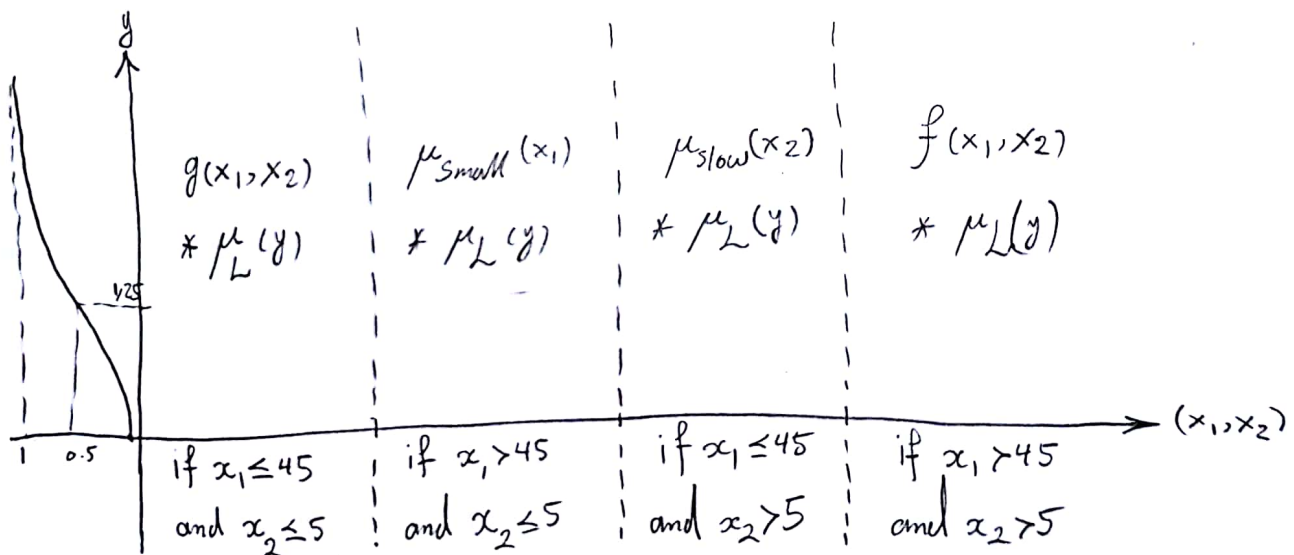 y
g(x₁,x₂)
* μ_L(y)
μ_Small(x₁)
* μ_L(y)
μ_Slow(x₂)
* μ_L(y)
f(x₁,x₂)
* μ_L(y)
1,25
1
0.5
(x₁,x₂)
if x₁≤45
and x₂≤5
if x₁>45
and x₂≤5
if x₁≤45
and x₂>5
if x₁>45
and x₂>5